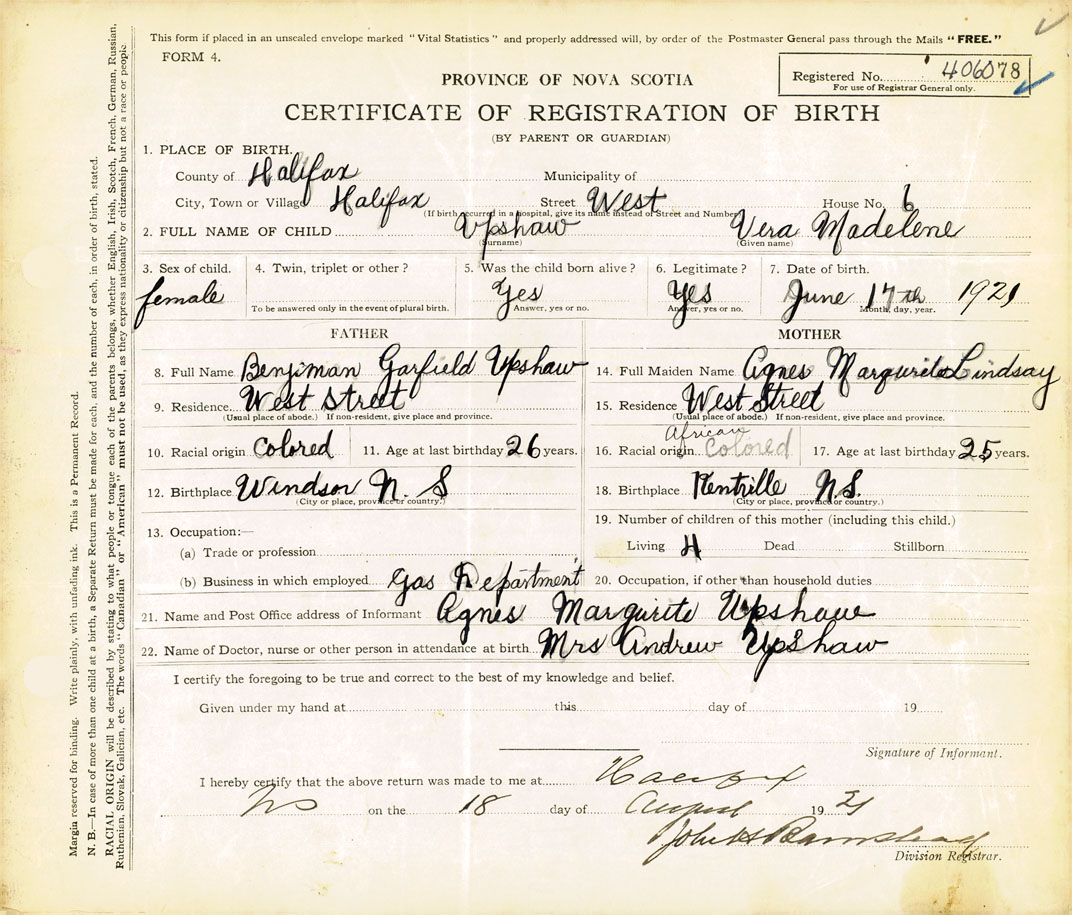 This form if placed in an unsealed envelope marked "Vital Statistics" and properly addressed will, by order of the Postmaster General pass through the Mails "FREE."
FORM 4.
Registered No. 406078
For use of Registrar General only.
PROVINCE OF NOVA SCOTIA
CERTIFICATE OF REGISTRATION OF BIRTH
(BY PARENT OR GUARDIAN)
1. PLACE OF BIRTH.
County of Halifax Municipality of
City, Town or Village Halifax Street West House No. 6
(If birth occurred in a hospital, give its name instead of Street and Number)
2. FULL NAME OF CHILD Upshaw Vera Madelene
(Surname) (Given name)
3. Sex of child. 4. Twin, triplet or other? 5. Was the child born alive? 6. Legitimate? 7. Date of birth.
female Yes Yes June 17th 1921
To be answered only in the event of plural birth. Answer, yes or no. Answer, yes or no. Month, day, year.
FATHER MOTHER
8. Full Name Benjiman Garfield Upshaw 14. Full Maiden Name Agnes Margurite Lindsay
9. Residence West Street 15. Residence West Street
(Usual place of abode.) If non-resident, give place and province. (Usual place of abode.) If non-resident, give place and province.
African
10. Racial origin Colored 11. Age at last birthday 26 years. 16. Racial origin Colored 17. Age at last birthday 25 years.
12. Birthplace Windsor N. S 18. Birthplace Kentville N.S.
(City or place, province or country.) (City or place, province or country.)
13. Occupation:— 19. Number of children of this mother (including this child.)
(a) Trade or profession Living 4 Dead Stillborn
(b) Business in which employed Gas Department 20. Occupation, if other than household duties
21. Name and Post Office address of Informant Agnes Margurite Upshaw
22. Name of Doctor, nurse or other person in attendance at birth. Mrs Andrew Upshaw
I certify the foregoing to be true and correct to the best of my knowledge and belief.
Given under my hand at this day of 19
Signature of Informant.
I hereby certify that the above return was made to me at Halifax
NS on the 18 day of August 19 21
John H Barnstead
Division Registrar.
Margin reserved for binding. Write plainly, with unfading ink. This is a Permanent Record.
N. B.—In case of more than one child at a birth, a Separate Return must be made for each, and the number of each, in order of birth, stated.
RACIAL ORIGIN will be described by stating to what people or tongue each of the parents belongs, whether English, Irish, Scotch, French, German, Russian,
Ruthenian, Slovak, Galician, etc. The words "Canadian" or "American" must not be used, as they express nationality or citizenship but not a race or people.